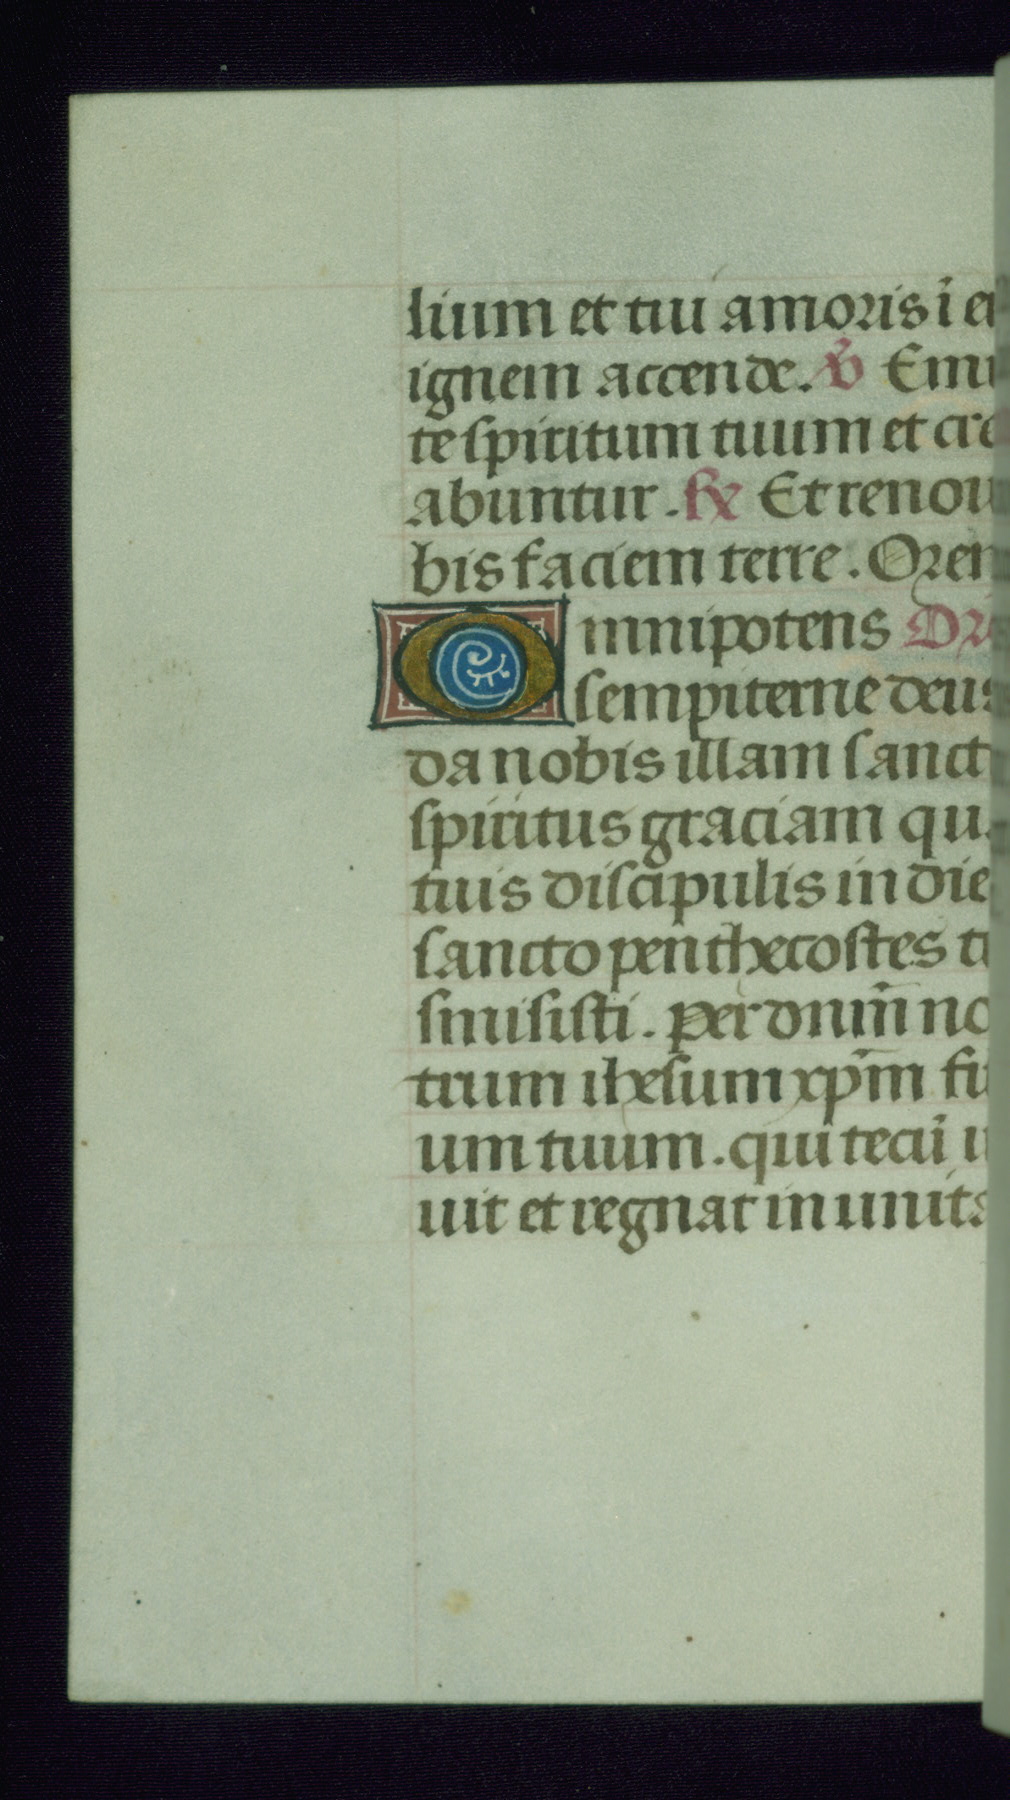 lium et tui amoris ī ei
ignem accende. ℣ Emi
te spiritum tuum et cre
abuntur. ℟ Et renou
bis faciem terre. Orem
Omnipotens Ori
sempiterne deus
da nobis illam sanct
spiritus graciam qua
tuis discipulis in die
sancto penthecostes
smisisti. per dnm̄ no
trum ihesum xp̄m fi
um tuum. qui tecū ui
uit et regnat in unita